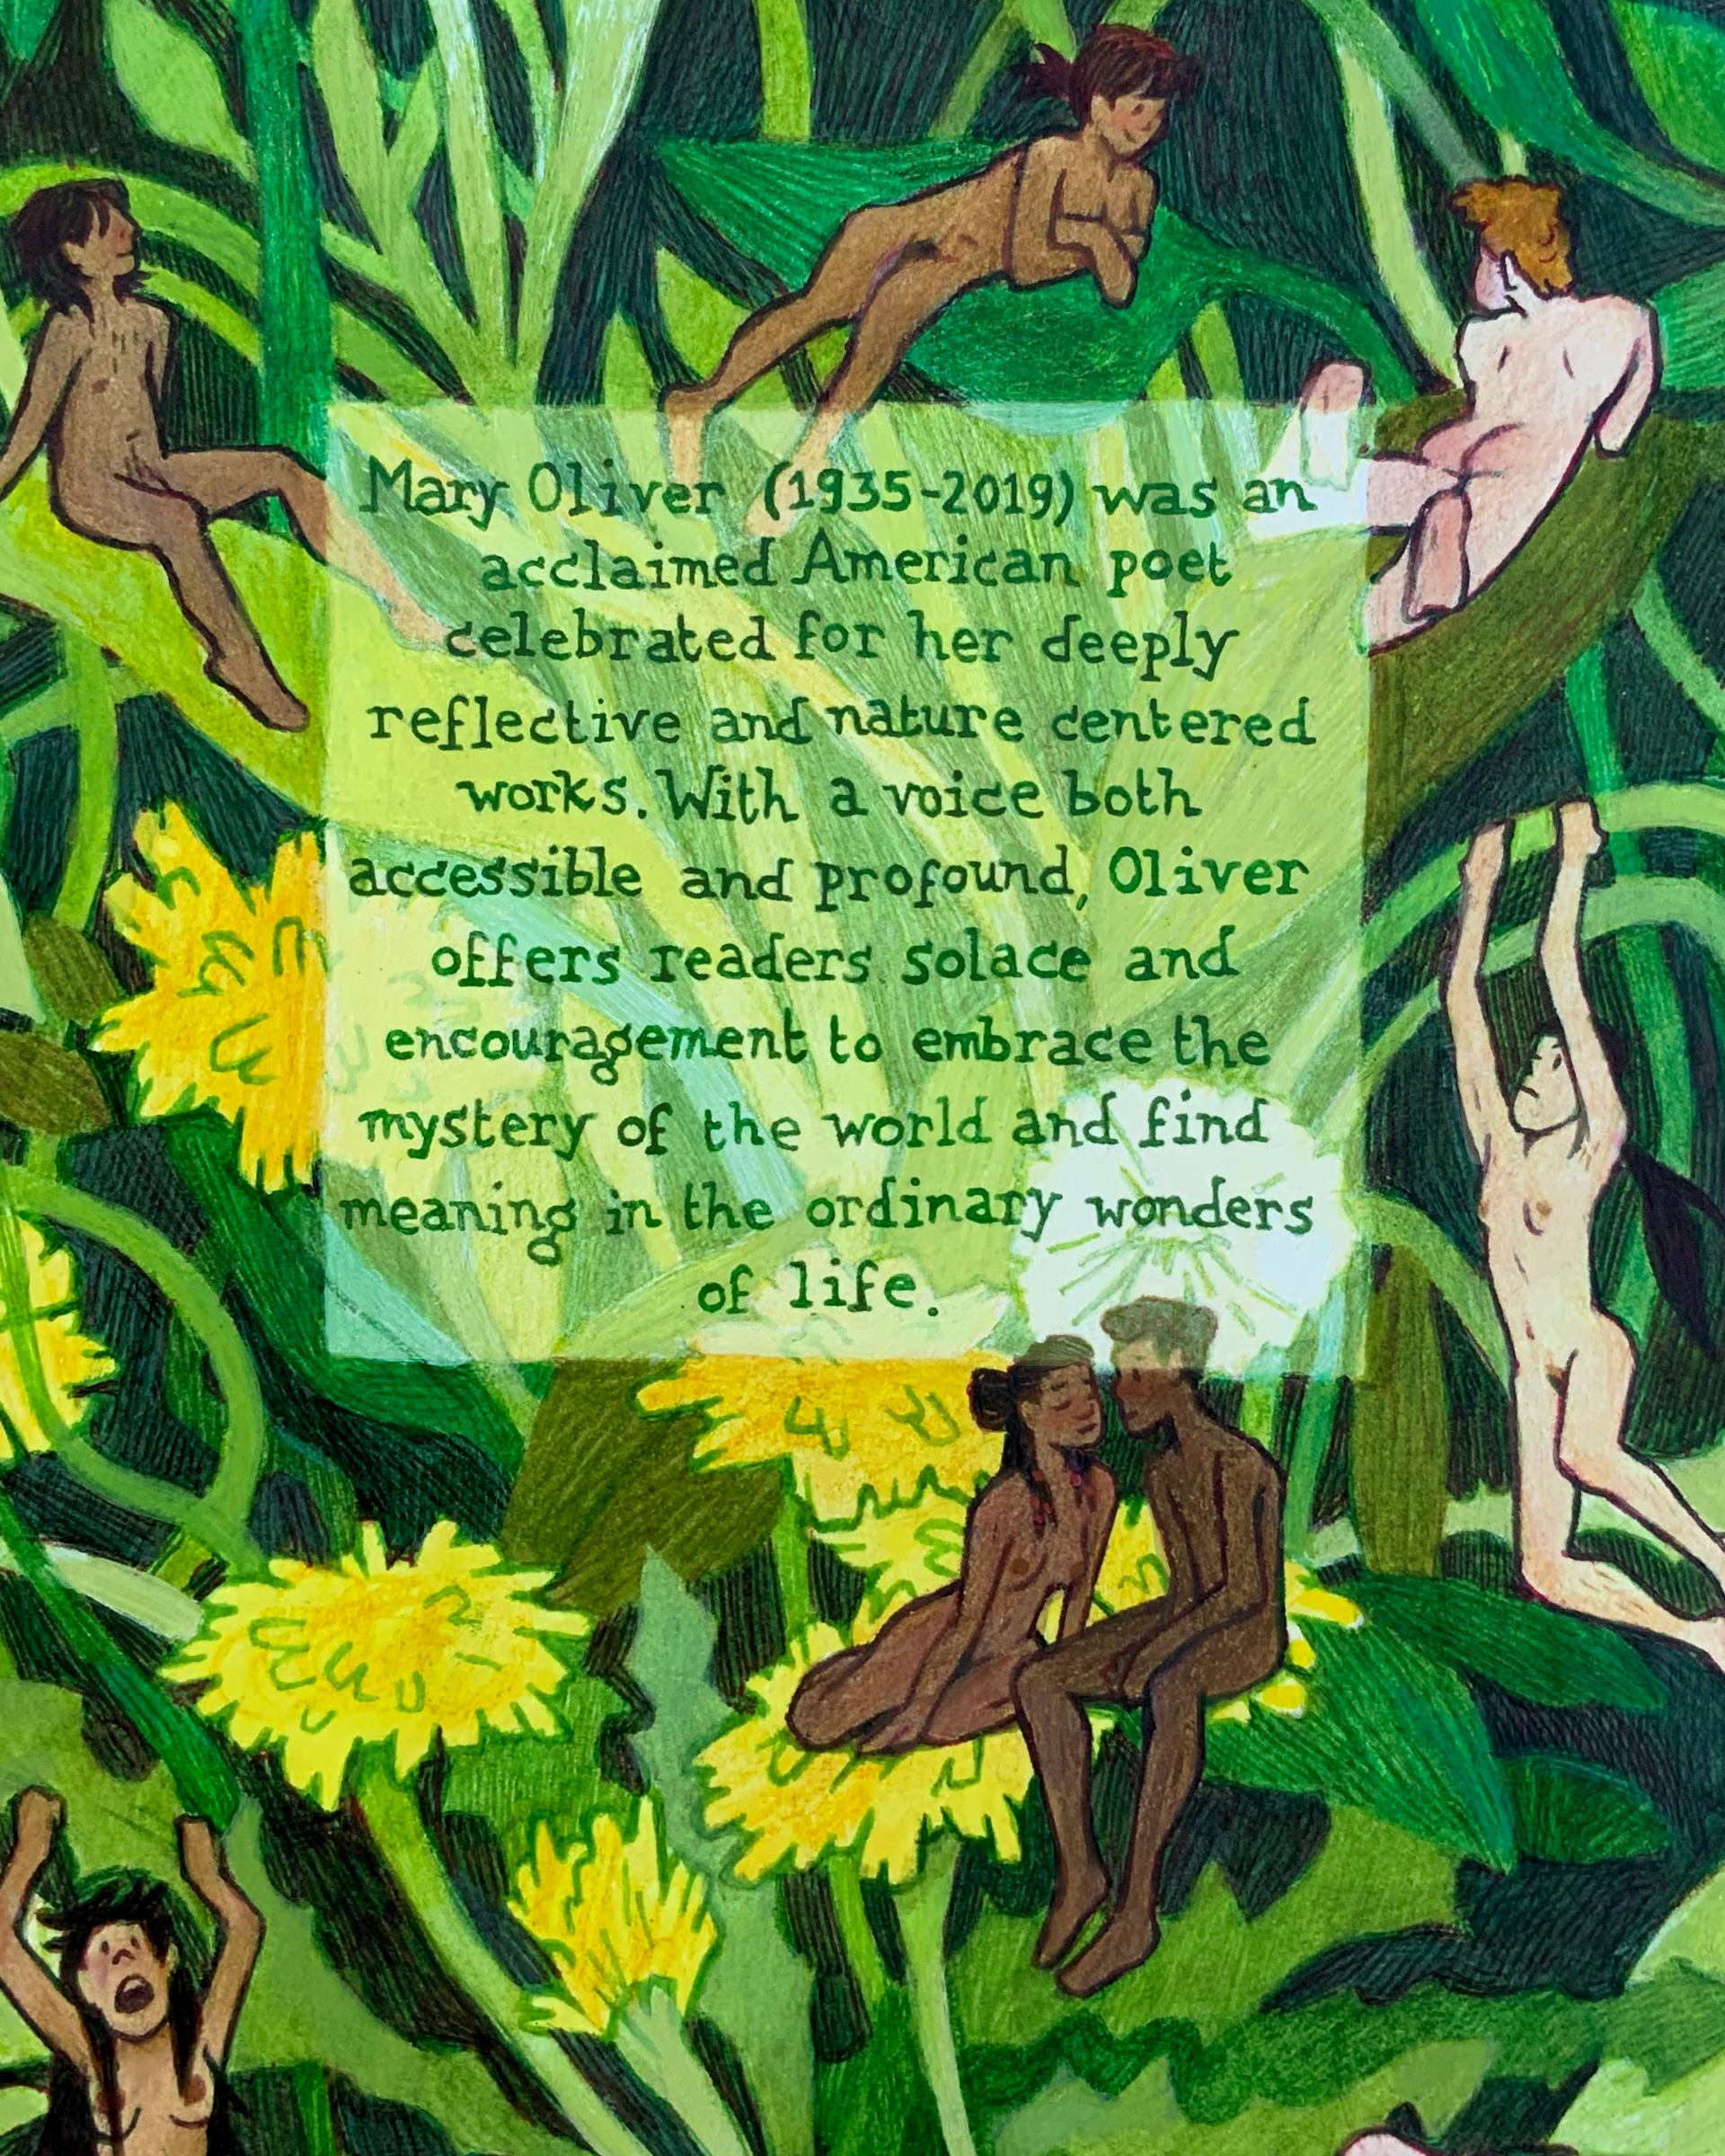 Mary Oliver (1935-2019) was an
acclaimed American poet
celebrated for her deeply
reflective and nature centered
works. With a voice both
accessible and profound, Oliver
offers readers solace and
encouragement to embrace the
mystery of the world and find
meaning in the ordinary wonders
of life.